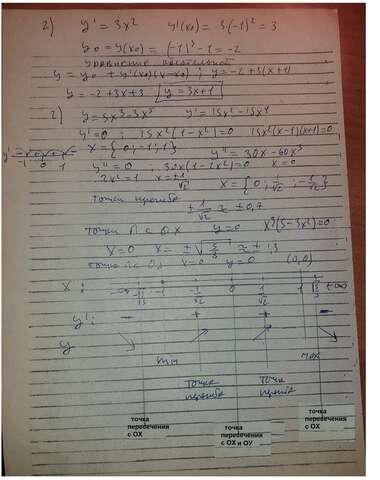 2) y' = 3x² y'(x₀) = 3·(-1)² = 3
y₀ = y(x₀) = (-1)³ - 1 = -2
уравнение касательной
y = y₀ + y'(x₀)(x-x₀) ; y = -2 + 3(x+1)
y = -2 + 3x + 3 y = 3x + 1
2) y = 5x³ - 3x⁵ y' = 15x² - 15x⁴
y' = 0 ; 15x²(1-x²) = 0 15x²(x-1)(x+1) = 0
x = {0; -1; 1} y'' = 30x - 60x³
-1 0 1
y'' = 0 ; 30x(1-2x²) = 0 x = 0
2x² = 1 x = ±1/√2 x = {0; 1/√2; -1/√2}
точки перегиба
±1/√2 ≈ ±0,7
точки П с OX y = 0 x³(5-3x²) = 0
x = 0 x = ±√(5/3) ≈ ±1,3
x = 0 y = 0 (0,0)
x: -∞ -√(5/3) -1 -1/√2 0 1/√2 1 √(5/3) +∞
y': - + + -
y
min max
точка перегиба точка перегиба
точка
пересечения
с ОХ
точка
пересечения
с ОХ и ОУ
точка
пересечения
с ОХ